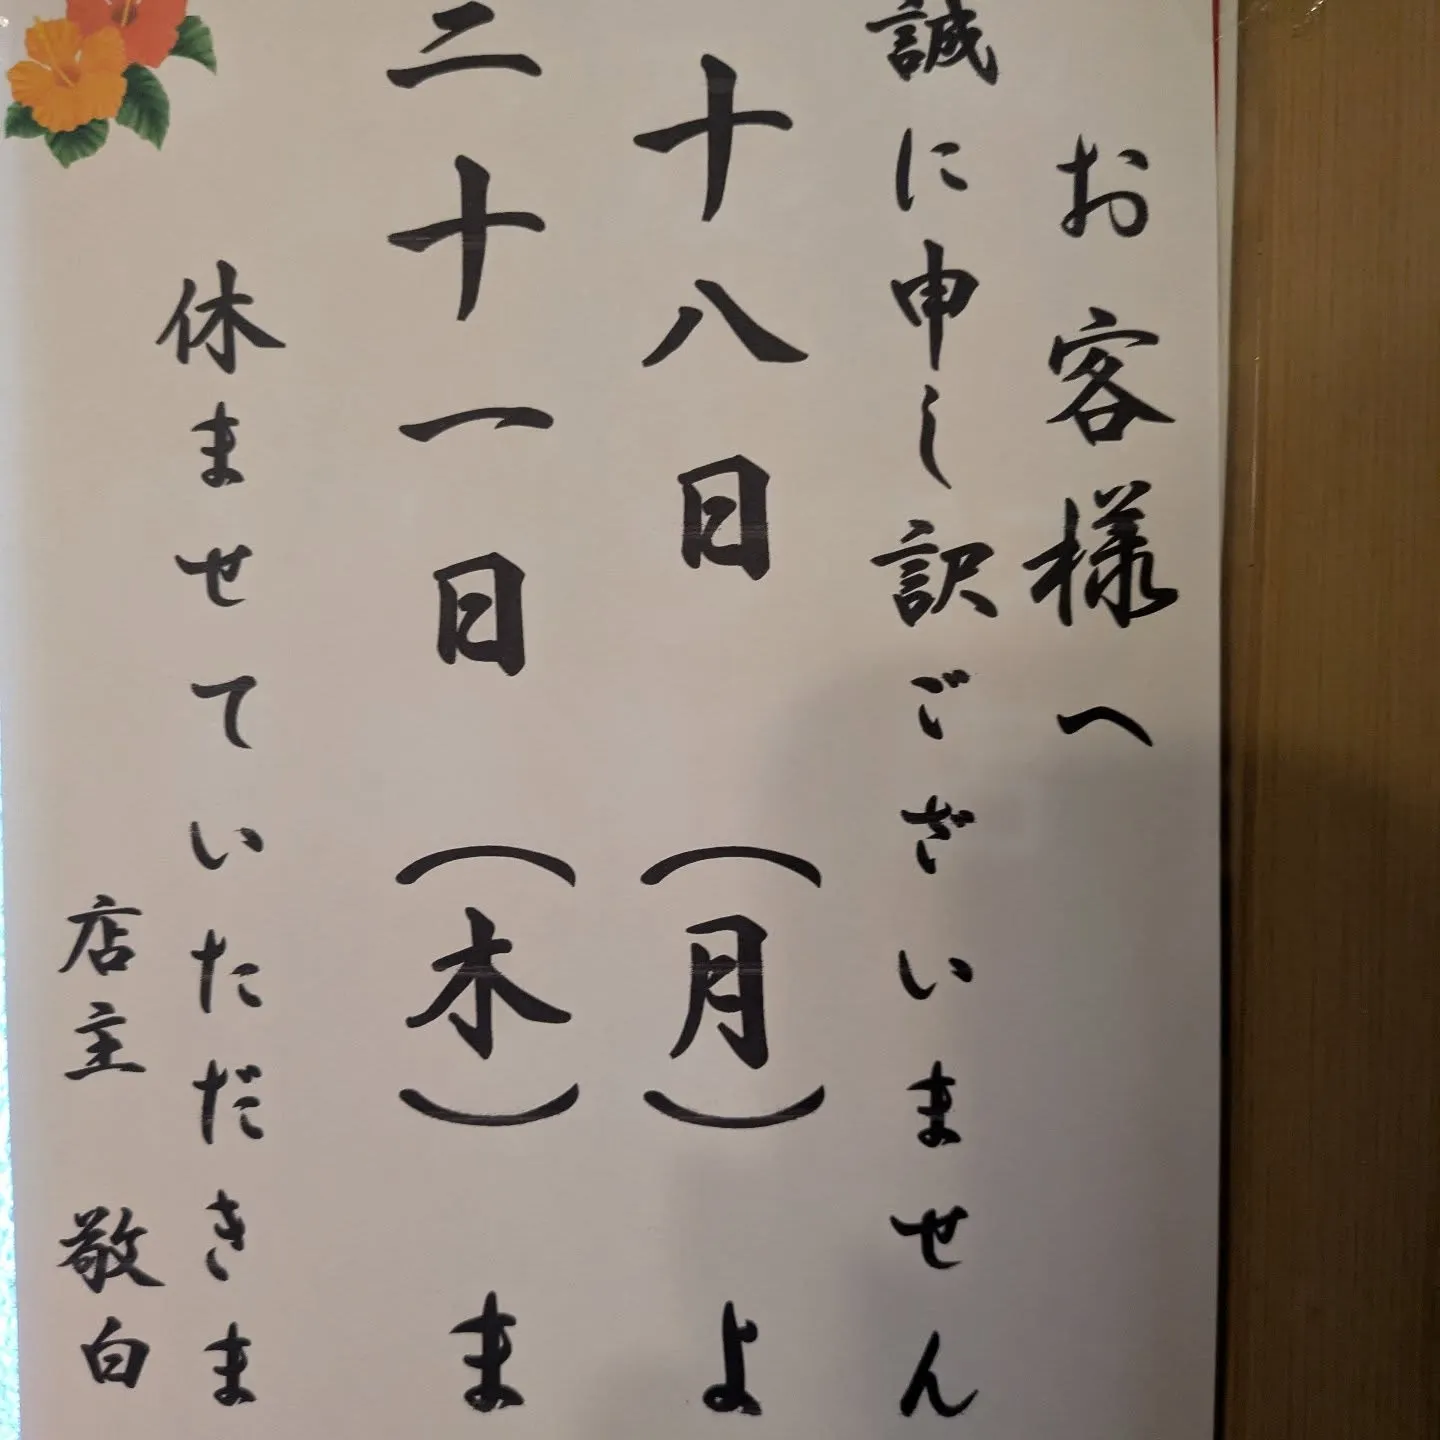 お客様へ
誠に申し訳ございません
十八日（月）よ
二十一日（木）ま
休ませていただきま
店主 敬白